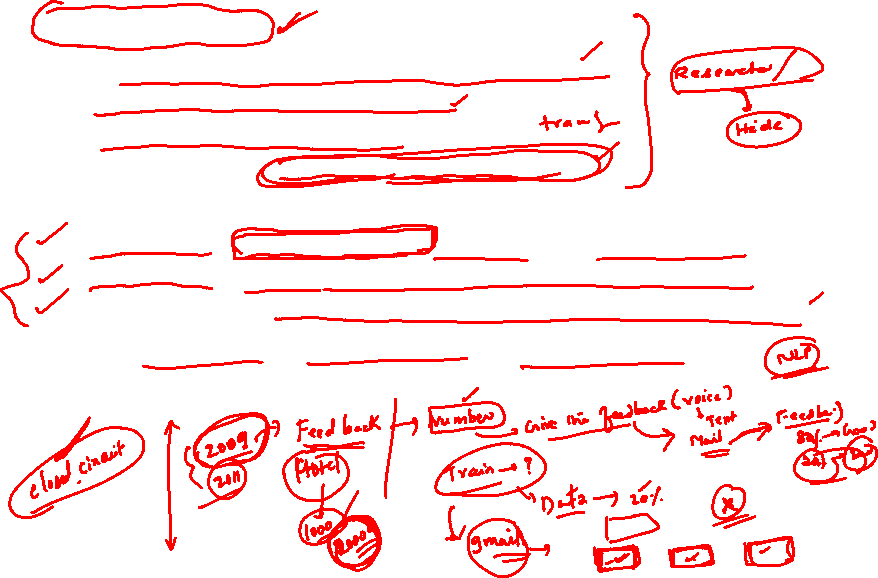 Researcher
Hide
NLP
closed circuit
2009
2011
Feedback
Hotel
1000
2000
Number
Give the feedback (voice)
Text
Mail
Train → ?
Data → 20%
gmail